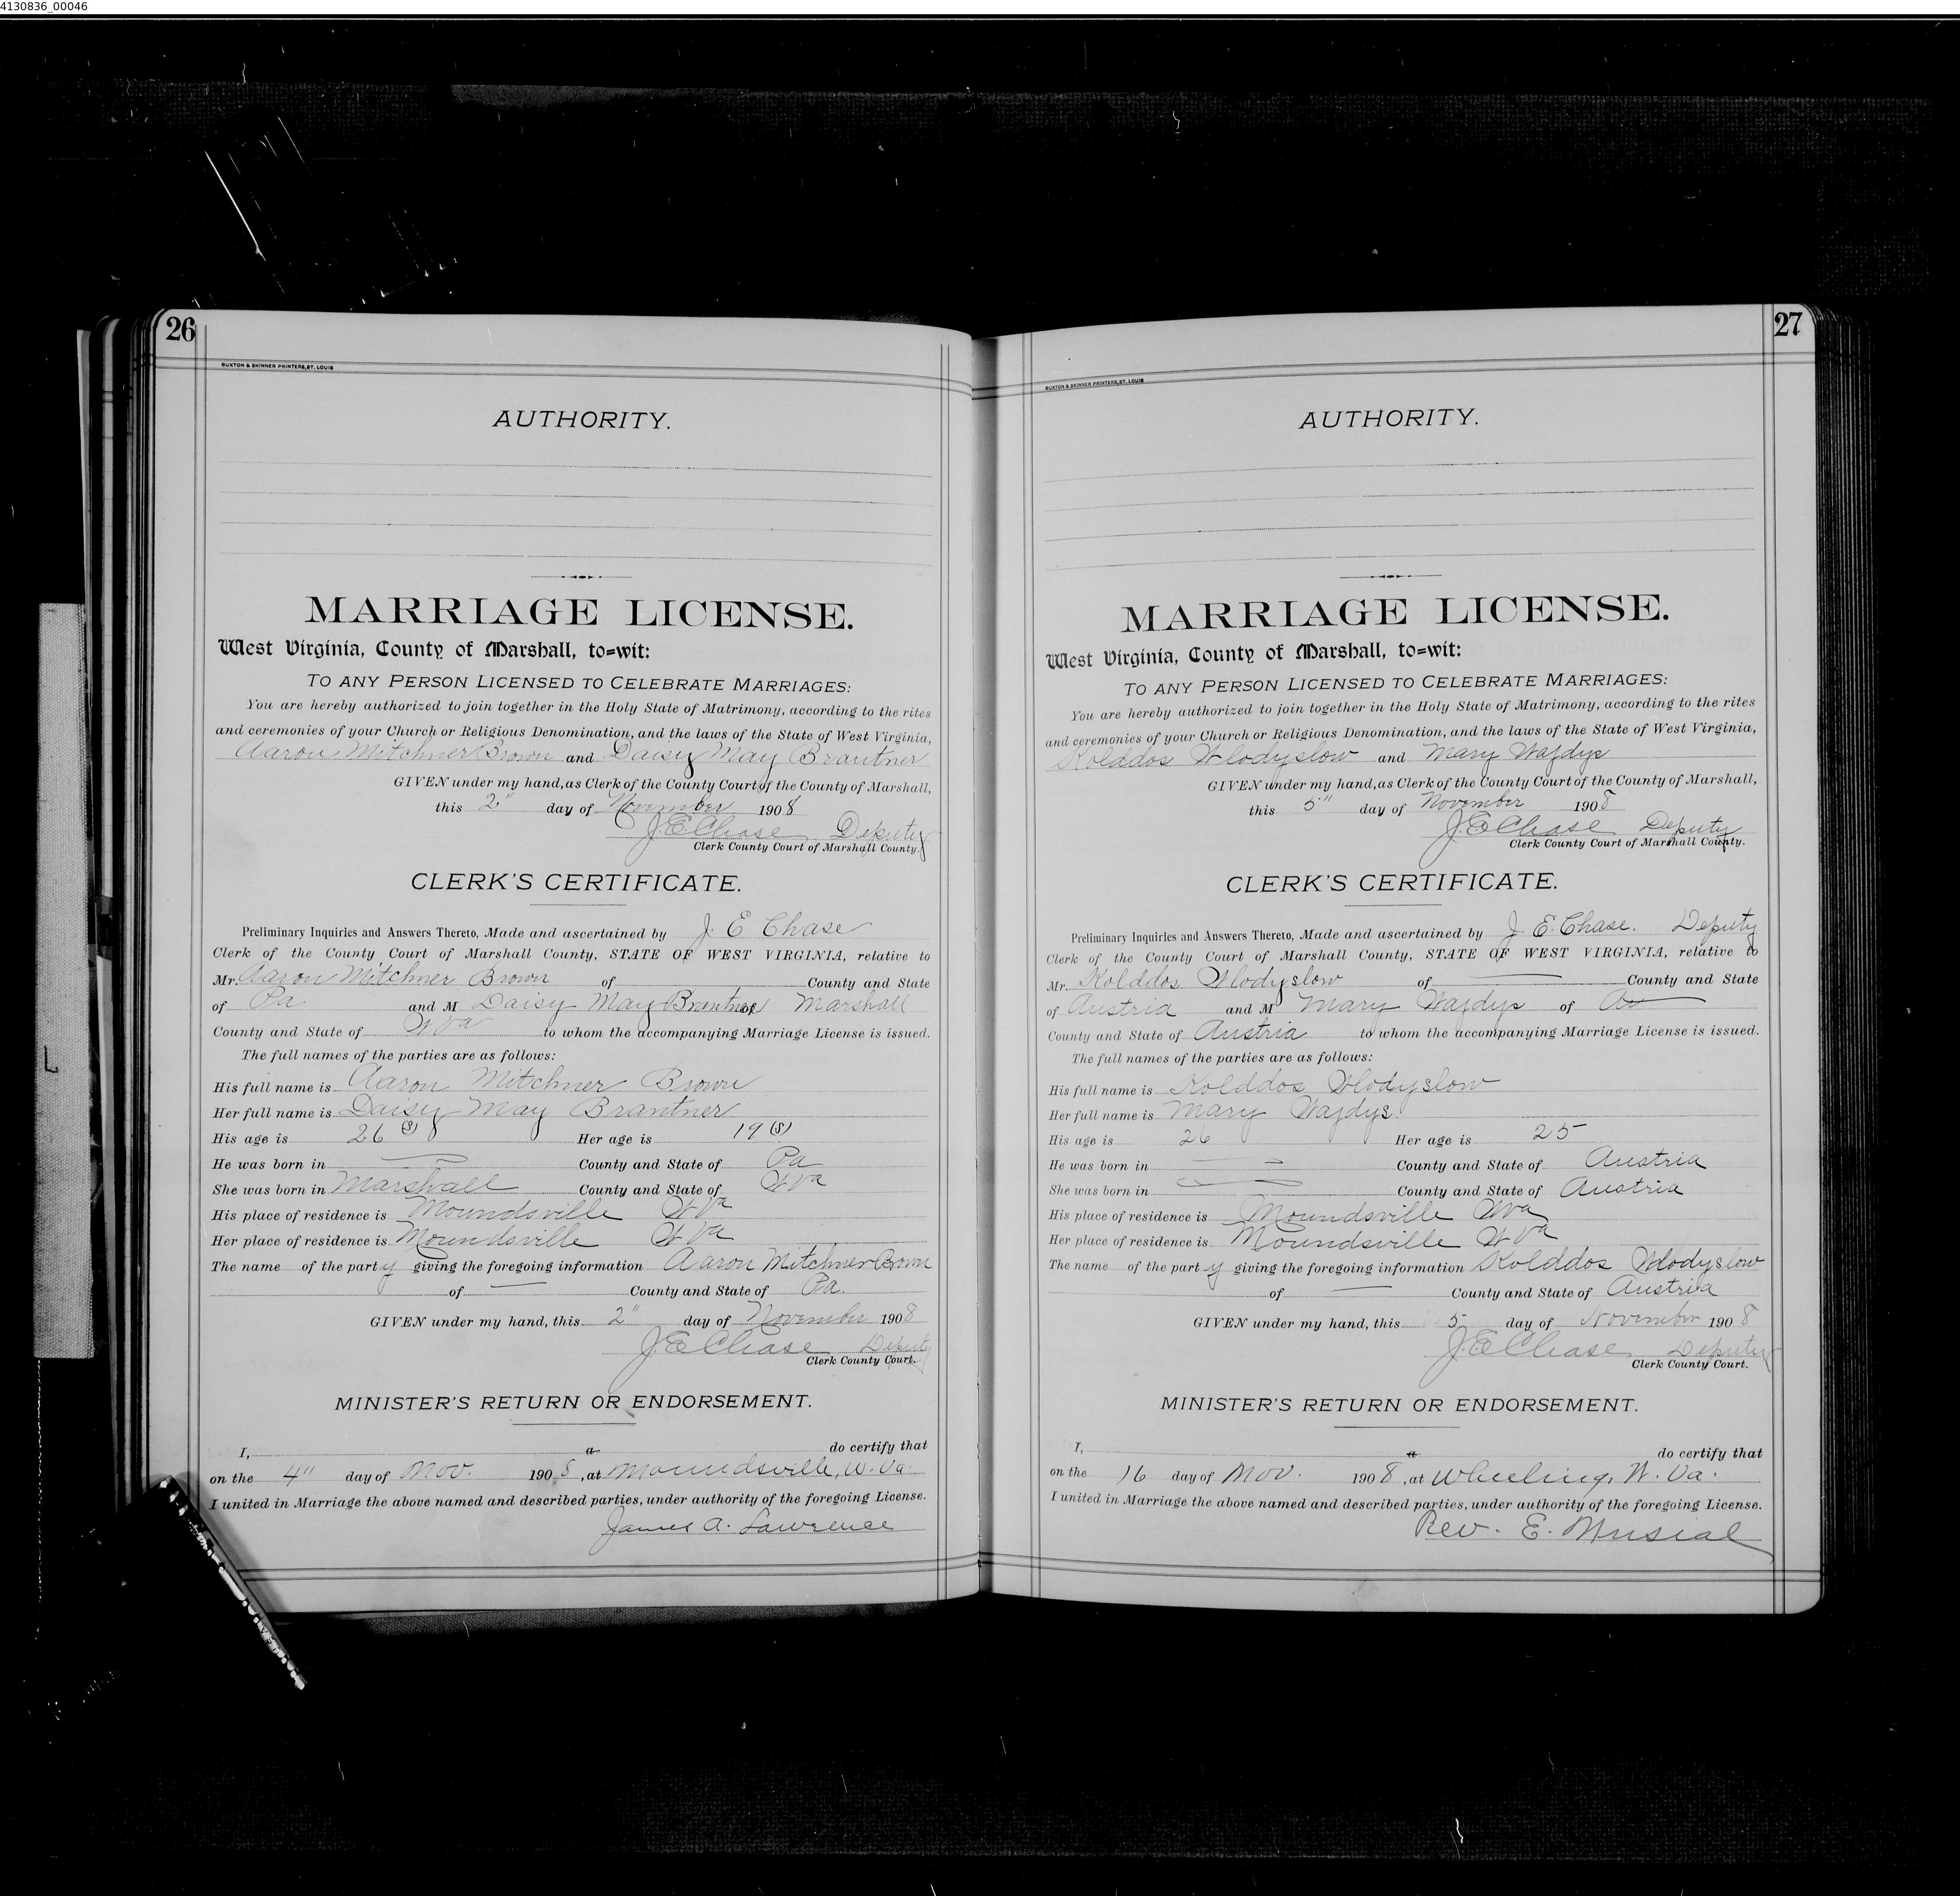 4130836_00046
26
BUXTON & SKINNER PRINTERS, ST. LOUIS
AUTHORITY.
MARRIAGE LICENSE.
West Virginia, County of Marshall, to=wit:
TO ANY PERSON LICENSED TO CELEBRATE MARRIAGES:
You are hereby authorized to join together in the Holy State of Matrimony, according to the rites
and ceremonies of your Church or Religious Denomination, and the laws of the State of West Virginia,
Aaron Mitchner Brown and Daisy May Brantner
GIVEN under my hand, as Clerk of the County Court of the County of Marshall,
this 2" day of November 1908
J. E. Chase Deputy
Clerk County Court of Marshall County.
CLERK'S CERTIFICATE.
Preliminary Inquiries and Answers Thereto, Made and ascertained by J. E Chase
Clerk of the County Court of Marshall County, STATE OF WEST VIRGINIA, relative to
Mr. Aaron Mitchner Brown of County and State
of Pa and M Daisy May Brantner of Marshall
County and State of W Va to whom the accompanying Marriage License is issued.
The full names of the parties are as follows:
His full name is Aaron Mitchner Brown
Her full name is Daisy May Brantner
His age is 26 (S) Her age is 19 (S)
He was born in County and State of Pa
She was born in Marshall County and State of W Va
His place of residence is Moundsville W Va
Her place of residence is Moundsville W Va
The name of the party giving the foregoing information Aaron Mitchner Brown
of — County and State of Pa.
GIVEN under my hand, this 2" day of November 1908
J. E. Chase Deputy
Clerk County Court.
MINISTER'S RETURN OR ENDORSEMENT.
I, a do certify that
on the 4" day of Nov. 1908, at Moundsville, W. Va.
I united in Marriage the above named and described parties, under authority of the foregoing License.
James A. Lawrence
27
BUXTON & SKINNER PRINTERS, ST. LOUIS
AUTHORITY.
MARRIAGE LICENSE.
West Virginia, County of Marshall, to=wit:
TO ANY PERSON LICENSED TO CELEBRATE MARRIAGES:
You are hereby authorized to join together in the Holy State of Matrimony, according to the rites
and ceremonies of your Church or Religious Denomination, and the laws of the State of West Virginia,
Kolddos Wlodyslow and Mary Wajdys
GIVEN under my hand, as Clerk of the County Court of the County of Marshall,
this 5" day of November 1908
J. E. Chase Deputy
Clerk County Court of Marshall County.
CLERK'S CERTIFICATE.
Preliminary Inquiries and Answers Thereto, Made and ascertained by J. E. Chase. Deputy
Clerk of the County Court of Marshall County, STATE OF WEST VIRGINIA, relative to
Mr. Kolddos Wlodyslow of — County and State
of Austria and M Mary Wajdys of Au
County and State of Austria to whom the accompanying Marriage License is issued.
The full names of the parties are as follows:
His full name is Kolddos Wlodyslow
Her full name is Mary Wajdys.
His age is 26 Her age is 25
He was born in County and State of Austria
She was born in County and State of Austria
His place of residence is Moundsville W Va
Her place of residence is Moundsville W Va
The name of the party giving the foregoing information Kolddos Wlodyslow
of — County and State of Austria
GIVEN under my hand, this 5 day of November 1908
J. E. Chase Deputy
Clerk County Court.
MINISTER'S RETURN OR ENDORSEMENT.
I, a do certify that
on the 16 day of Nov. 1908, at Wheeling, W. Va.
I united in Marriage the above named and described parties, under authority of the foregoing License.
Rev. E. Musial